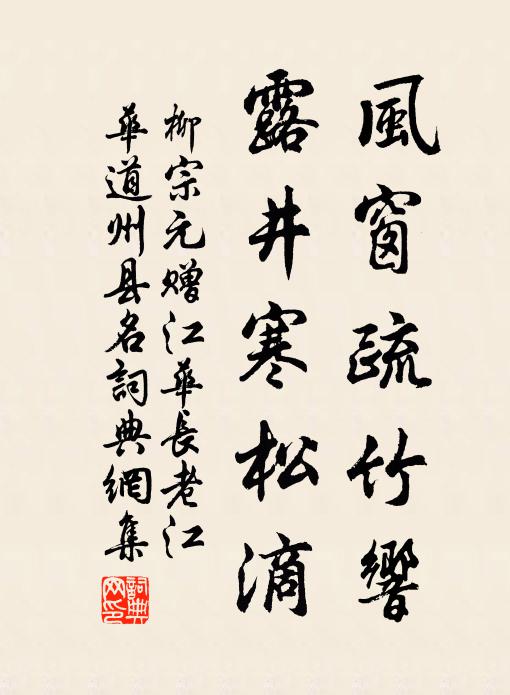 風窗疏竹響
露井寒松滴
柳宗元贈江華長老江
華道州县名詞典網集
詞典網印